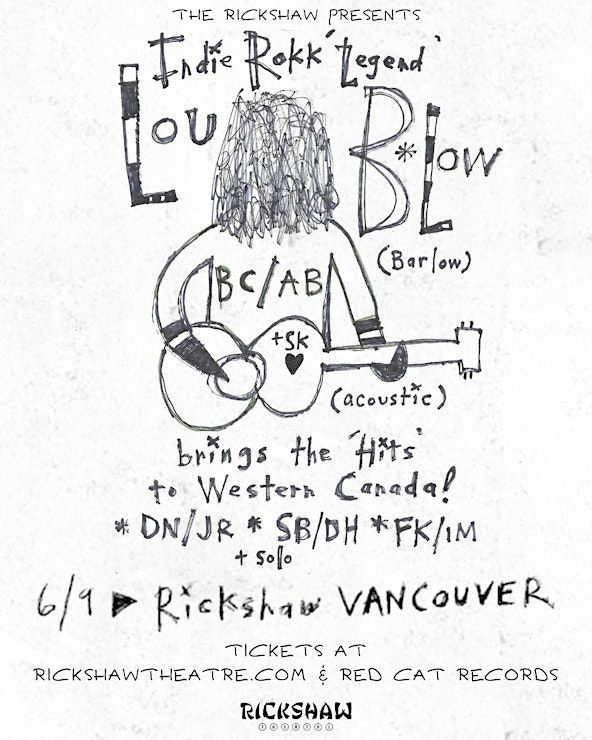 THE RICKSHAW PRESENTS
Indie Rokk 'Legend'
LOU B*LOW
(Barlow)
BC/AB
+SK
(acoustic)
brings the 'Hits'
to Western Canada!
* DN/JR * SB/DH * FK/IM
+ solo
6/9 ▶ Rickshaw VANCOUVER
TICKETS AT
RICKSHAWTHEATRE.COM & RED CAT RECORDS
RICKSHAW
THEATRE